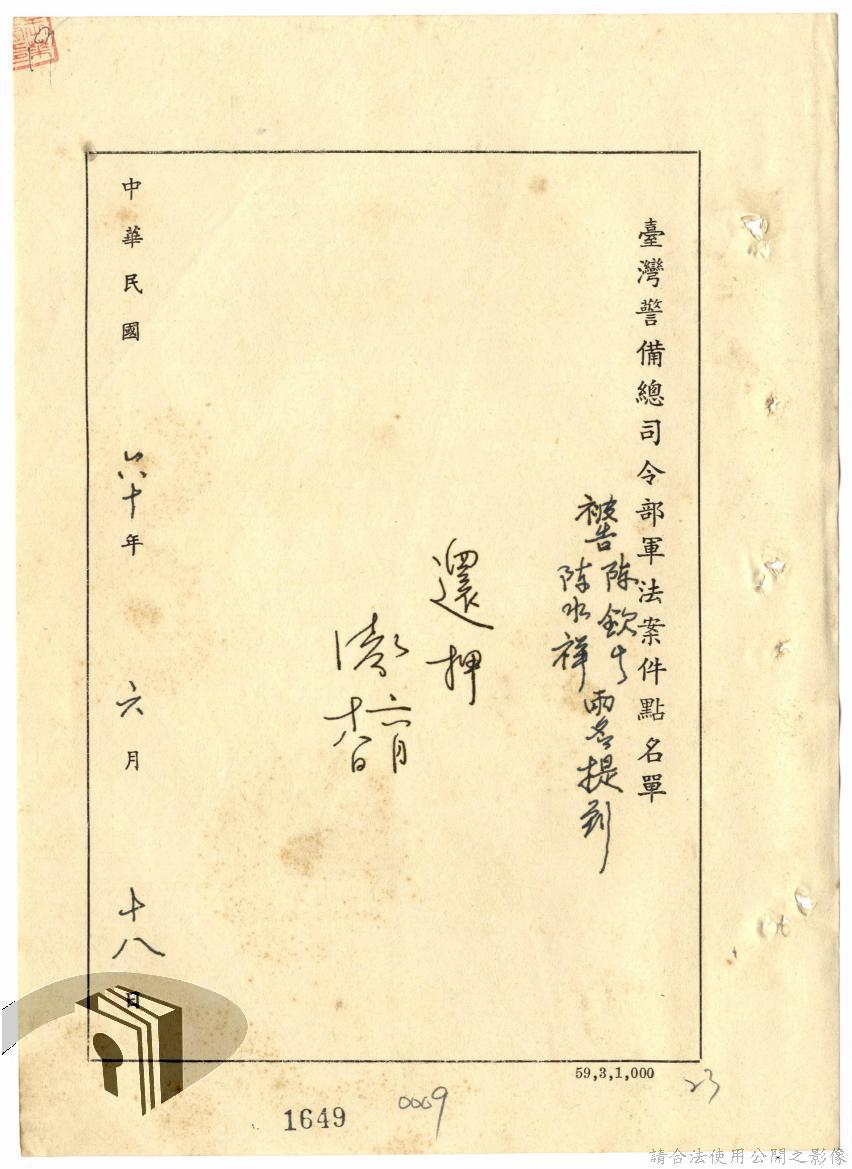 臺灣警備總司令部軍法案件點名單
被告陈欽生
陈水祥
兩名提到
還押
六月
十八日
中華民國六十年六月十八日
59,3,1,000
23
0009
1649
請合法使用公開之影像